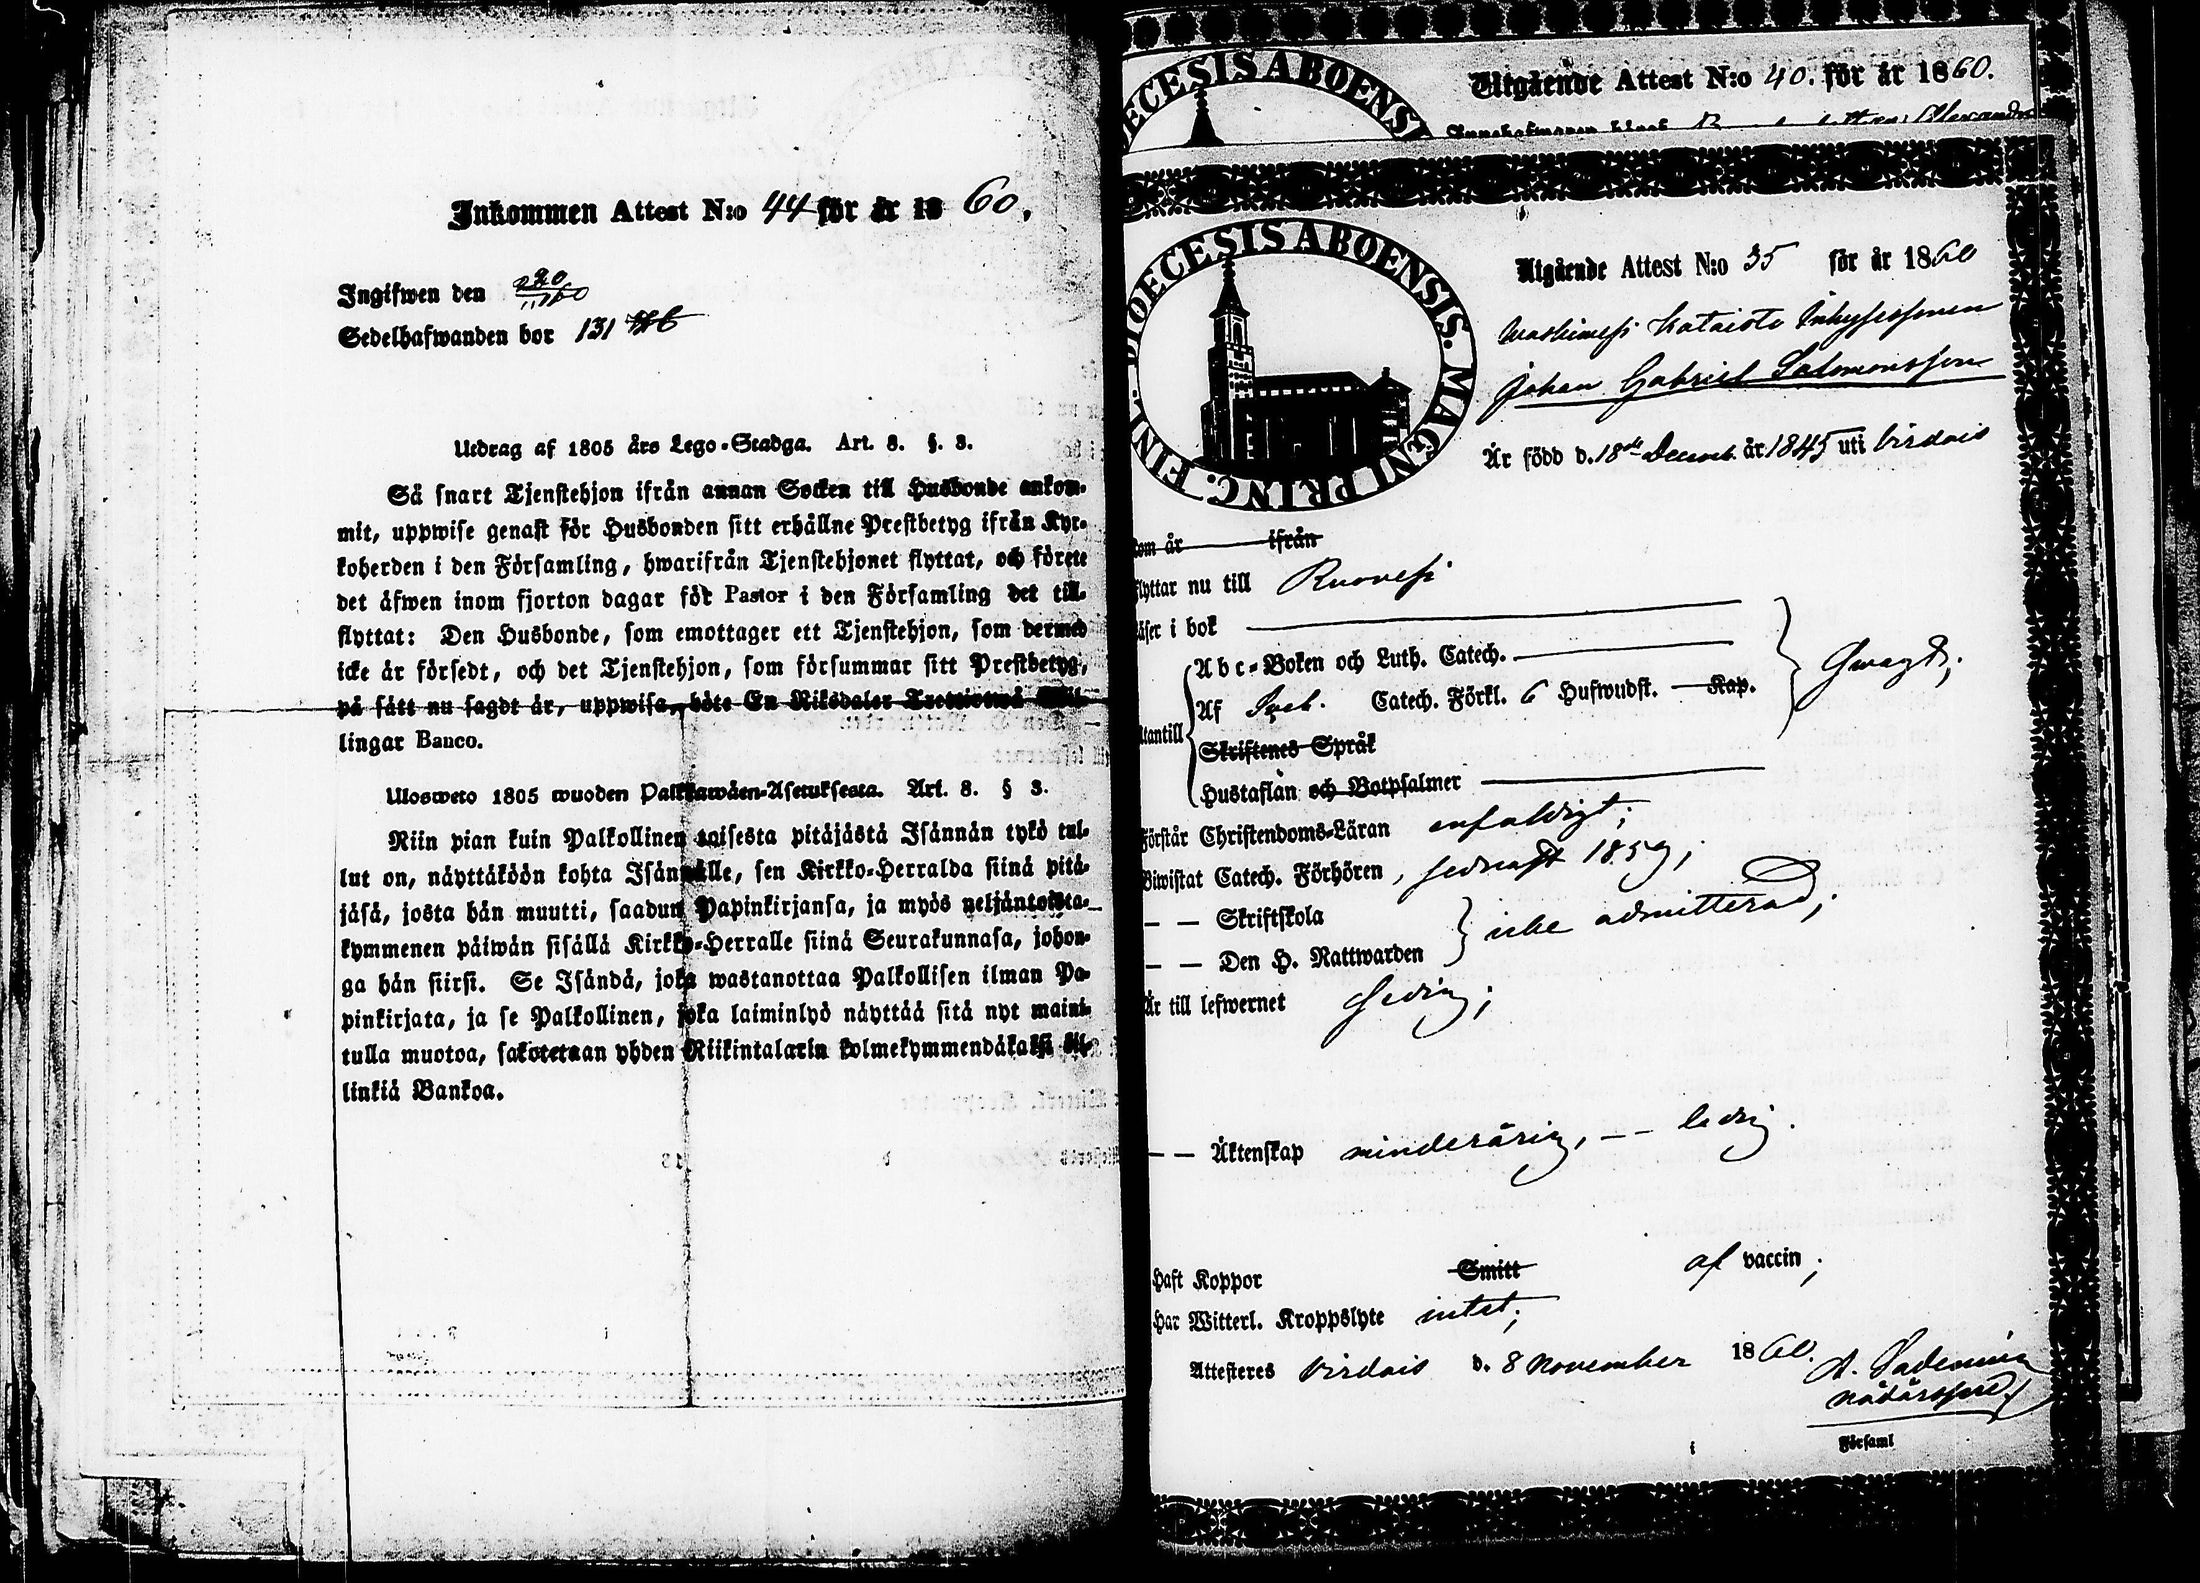 Inkommen Attest N:o 44 för år 18 60.
Ingifwen den 20/11 60
Sedelhafwanden bor 131
Utdrag af 1805 års Lego-Stadga. Art. 8. §. 3.
Så snart Tjenstehjon ifrån annan Socken till Husbonde ankom-
mit, uppwise genast för Husbonden sitt erhållne Prestbetyg ifrån Kyr-
koherden i den Församling, hwarifrån Tjenstehjonet flyttat, och förete
det äfwen inom fjorton dagar för Pastor i den Församling det till-
flyttat: Den Husbonde, som emottager ett Tjenstehjon, som dermed
icke är försedt, och det Tjenstehjon, som försummar sitt Prestbetyg,
på sätt nu sagdt är, uppwisa, böte En Riksdaler Trettiotwå Skil-
lingar Banco.
Ulosweto 1805 wuoden Palkkawäen-Asetuksesta. Art. 8. § 3.
Niin pian kuin Palkollinen toisesta pitäjästä Isännän tykö tul-
lut on, näyttäköön kohta Isännälle, sen Kirkko-Herralda siinä pitä-
jäsä, josta hän muutti, saadun Papinkirjansa, ja myös neljäntoista-
kymmenen päiwän sisällä Kirkko-Herralle siinä Seurakunnasa, johon-
ga hän siirsi. Se Isändä, joka wastanottaa Palkollisen ilman Pa-
pinkirjata, ja se Palkollinen, joka laiminlyö näyttää sitä nyt maini-
tulla muotoa, sakotetaan yhden Riikintalarin kolmekymmendäkaksi kil-
linkiä Bankoa.
DIOECESIS ABOENSIS
Utgående Attest N:o 40. för år 1860.
DIOECESIS ABOENSIS. MAGNI PRINC. FINL.
Utgående Attest N:o 35 för år 1860
Waskiwesi Kataisto Inhysessonen
Johan Gabriel Salomonsson
Är född d. 18de Decemb. år 1845 uti Virdois
kom år ifrån
flyttar nu till Ruovesi
läser i bok
Abc-Boken och Luth. Catech.
utantill Af Sveb. Catech. Förkl. 6 Hufwudst. Kap. swagt;
Skriftenes Språk
Hustaflan och Botpsalmer
Förstår Christendoms-Läran enfaldigt;
Biwistat Catech. Förhören, sednast 1859;
— — Skriftskola
— — Den H. Nattwarden icke admitterad;
Är till lefwernet sedig;
— — Äktenskap minderårig, — — ledig.
Haft Koppor Smitt af vaccin;
Har Witterl. Kroppslyte intet;
Attesteres Virdois d. 8 November 1860.
nådårspred.
i Församl